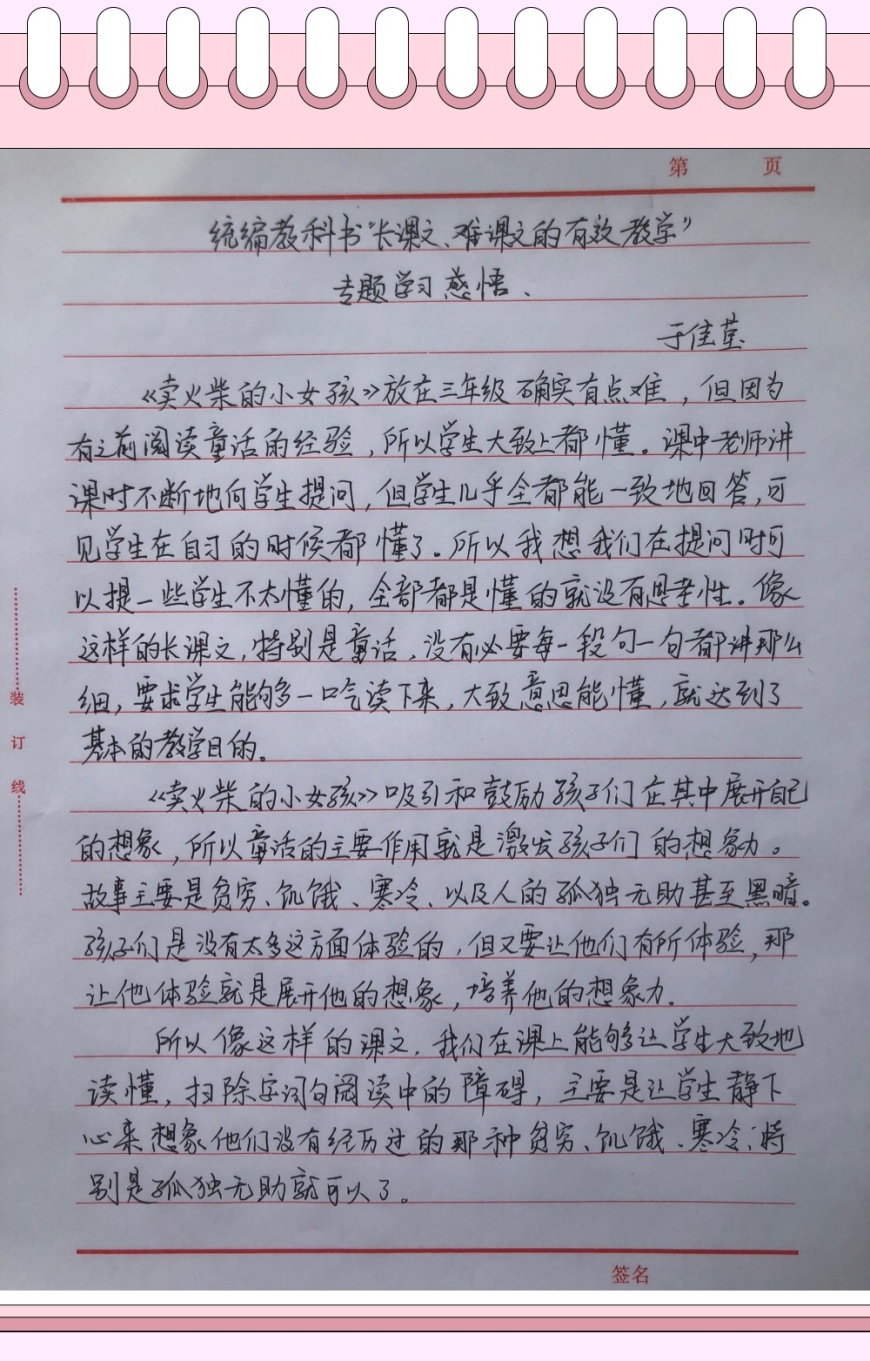 第 页
统编教科书“长课文、难课文的有效教学”
专题学习感悟、
于佳莹
《卖火柴的小女孩》放在三年级确实有点难，但因为
有之前阅读童话的经验，所以学生大致上都懂。课中老师讲
课时不断地向学生提问，但学生几乎全都能一致地回答，可
见学生在自习的时候都懂了。所以我想我们在提问时可
以提一些学生不太懂的，全部都是懂的就没有思考性。像
这样的长课文，特别是童话，没有必要每一段句一句都讲那么
细，要求学生能够多一口气读下来，大致意思能懂，就达到了
基本的教学目的。
《卖火柴的小女孩》吸引和鼓励孩子们在其中展开自己
的想象，所以童话的主要作用就是激发孩子们的想象力。
故事主要是贫穷、饥饿、寒冷、以及人的孤独无助甚至黑暗。
孩子们是没有太多这方面体验的，但又要让他们有所体验，那
让他体验就是展开他的想象，培养他的想象力.
所以像这样的课文，我们在课上能够让学生大致地
读懂，扫除字词句阅读中的障碍，主要是让学生静下
心来想象他们没有经历过的那种贫穷、饥饿、寒冷；特
别是孤独无助就可以了。
装
订
线
签名